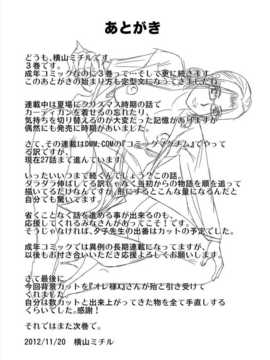 あとがき
どうも、横山ミチルです。
3巻です。
成年コミックなのに3巻って…そして更に続きます。
このあとがきの始まり方も定型文になってきましたね。
連載中は夏場にクリスマス時期の話で
カーディガンを着せるの忘れたり、
気持ちを切り替えるのが大変だった記憶がありますが
偶然にも発売に時期があいました。
さて、その連載はDMM.COMの『コミックマグナム』でやって
る訳ですが、
現在27話まで進んでいます。
いったいいつまで続くんでしょう?この話。
ダラダラ伸ばしてる訳じゃなく当初からの物語を順を追って
描いてるだけなんですが、形にするとこんな量になるんだと
自分でも驚いてます。
省くことなく話を進める事が出来るのも、
応援してくれるみなさんがあってこそ!です。
そうじゃなければ、夕子先生の出番はカットの予定でした。
成年コミックでは異例の長期連載になってますが、
以後もお付き合いいただき応援よろしくお願いします。
さて最後に
今回背景カットを『オレ様』さんが殆ど引き受けて
くれました。
自分は数カットと出来上がってきた物を全て手直しする
くらいでした。感謝!
それではまた次巻で。
2012/11/20 横山ミチル